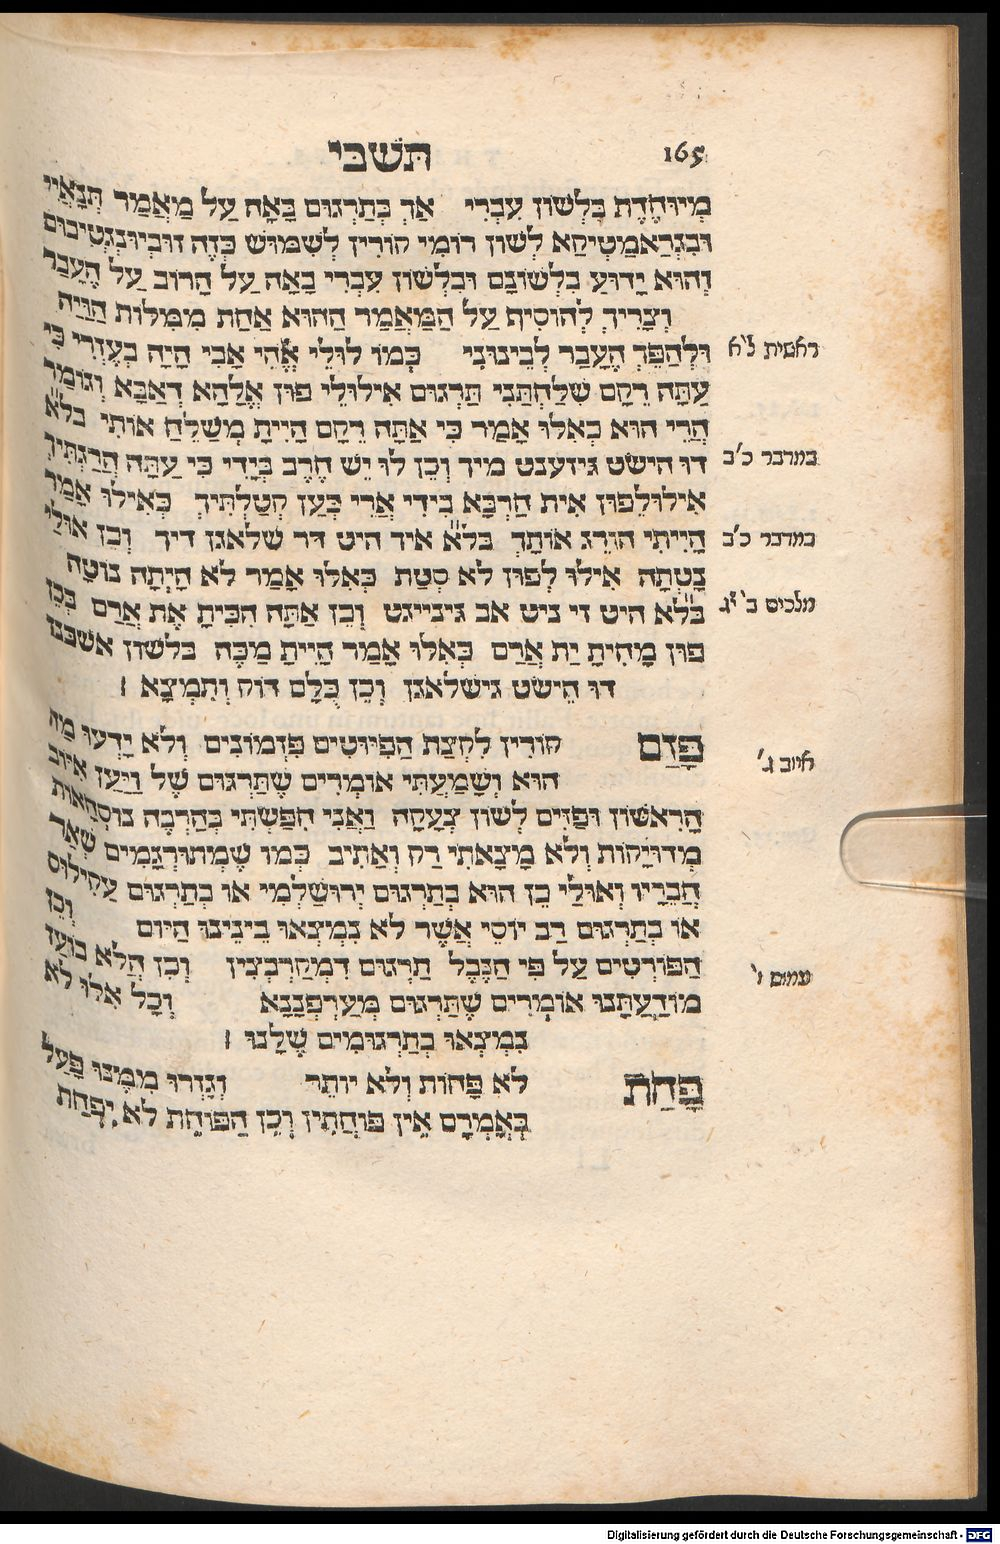 165
תשבי
מיוחדת בלשון עברי אך בתרגום באה על מאמר תנאיי
ובגראמטיקא לשון רומי קורין לשמוש כזה זוביונגטיבוס
והוא ידוע בלשונם ובלשון עברי באה על הרוב על העבר
וצריך להוסיף על המאמר ההוא אחת ממלות הויה
ראשית ל״א
ולהפך העבר לבינוני כמו לולי אלהי אבי היה בעזרי כי
עתה רקם שלחתני תרגום אילולי פון אלהא דאבא וגומר
הרי הוא כאלו אמר כי אתה ריקם היית משלח אותי בלא
במדבר כ״ב
דו הישט גיזענט מיך וכן לו יש חרב בידי כי עתה הרגתיך
אילולפון אית חרבא בידי ארי כען קטלתיך כאילו אמר
במדבר כ״ב
הייתי הורג אותך בלא איך היט דר שלאגן דיך וכן אולי
נטתה אילו לפון לא סטת כאלו אמר לא היתה נוטה
מלכים ב׳ י״ג
בלא היט זי ניט אב גינייגט וכן אתה הכית את ארם בכן
פון מחית ית ארם כאלו אמר היית מכה בלשון אשכנז
דו הישט גישלאגן וכן כלם דוק ותמצא ׃
פזם קורין לקצת הפיוטים פזמונים ולא ידעו מה
איוב ג׳
הוא ושמעתי אומרים שתרגום של ויען איוב
הראשון ופזים לשון צעקה ואני חפשתי בהרבה נוסחאות
מדוייקות ולא מצאתי רק ואתיב כמו שמתורגמים שאר
חבריו ואולי כן הוא בתרגום ירושלמי או בתרגום עקילוס
או בתרגום רב יוסי אשר לא נמצאו בינינו היום וכן
הפורטים על פי הנבל תרגום דמקרבצין וכן הלא בועז
עמוס ו׳
מודעתנו אומרים שתרגום מערפננא וכל אלו לא
נמצאו בתרגומים שלנו ׃
פחת לא פחות ולא יותר וגזרו ממנו פעל
באמרם אין פוחתין וכן הפוחת לא יפחת